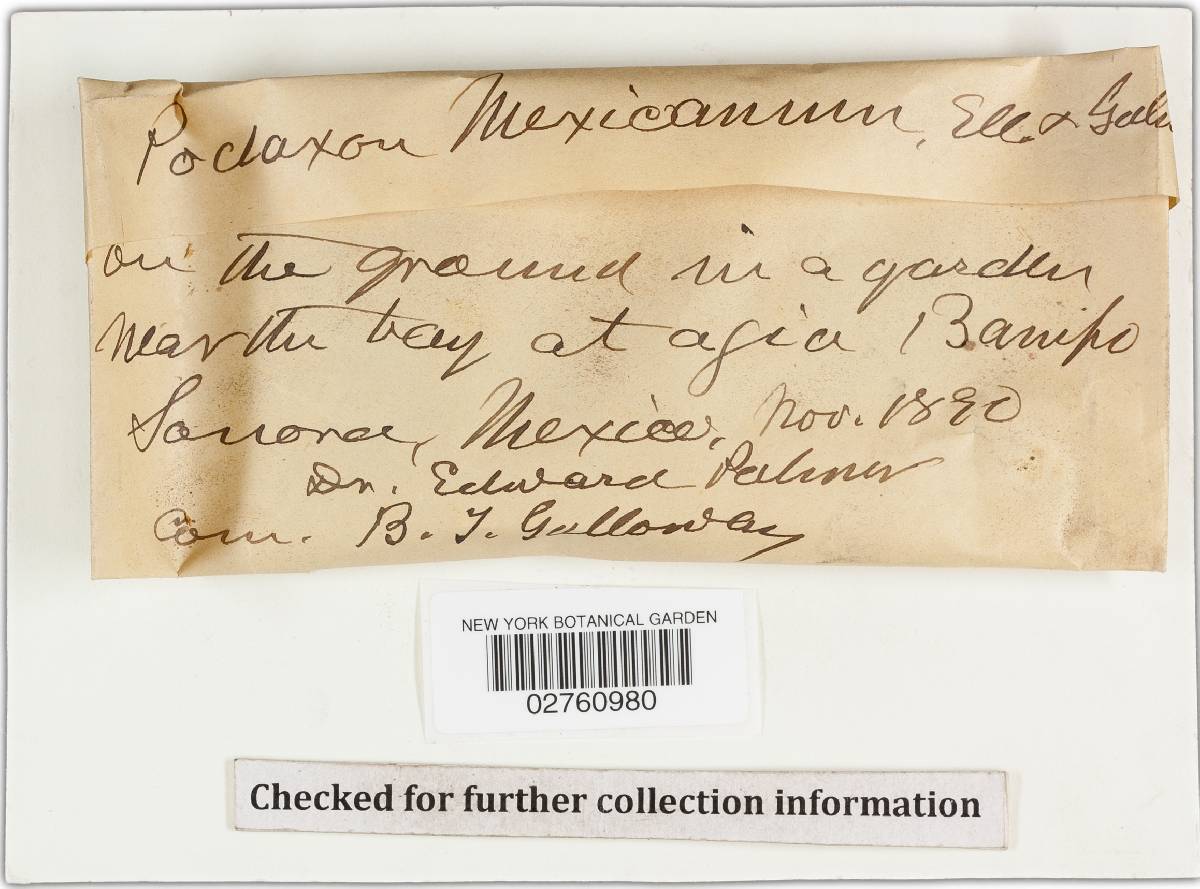 Podaxon Mexicanum, Ell. & Gallw
on the ground in a garden
near the bay at agia Bampo
Sonora, Mexico, Nov. 1890
Dr. Edward Palmer
Com. B. T. Galloway
NEW YORK BOTANICAL GARDEN
02760980
Checked for further collection information